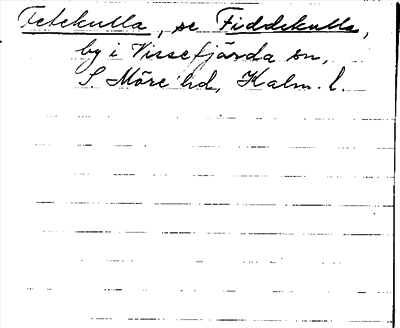 Fetekulla, se Fiddekulla,
by i Vissefjärda sn,
S Möre hd, Kalm. l.